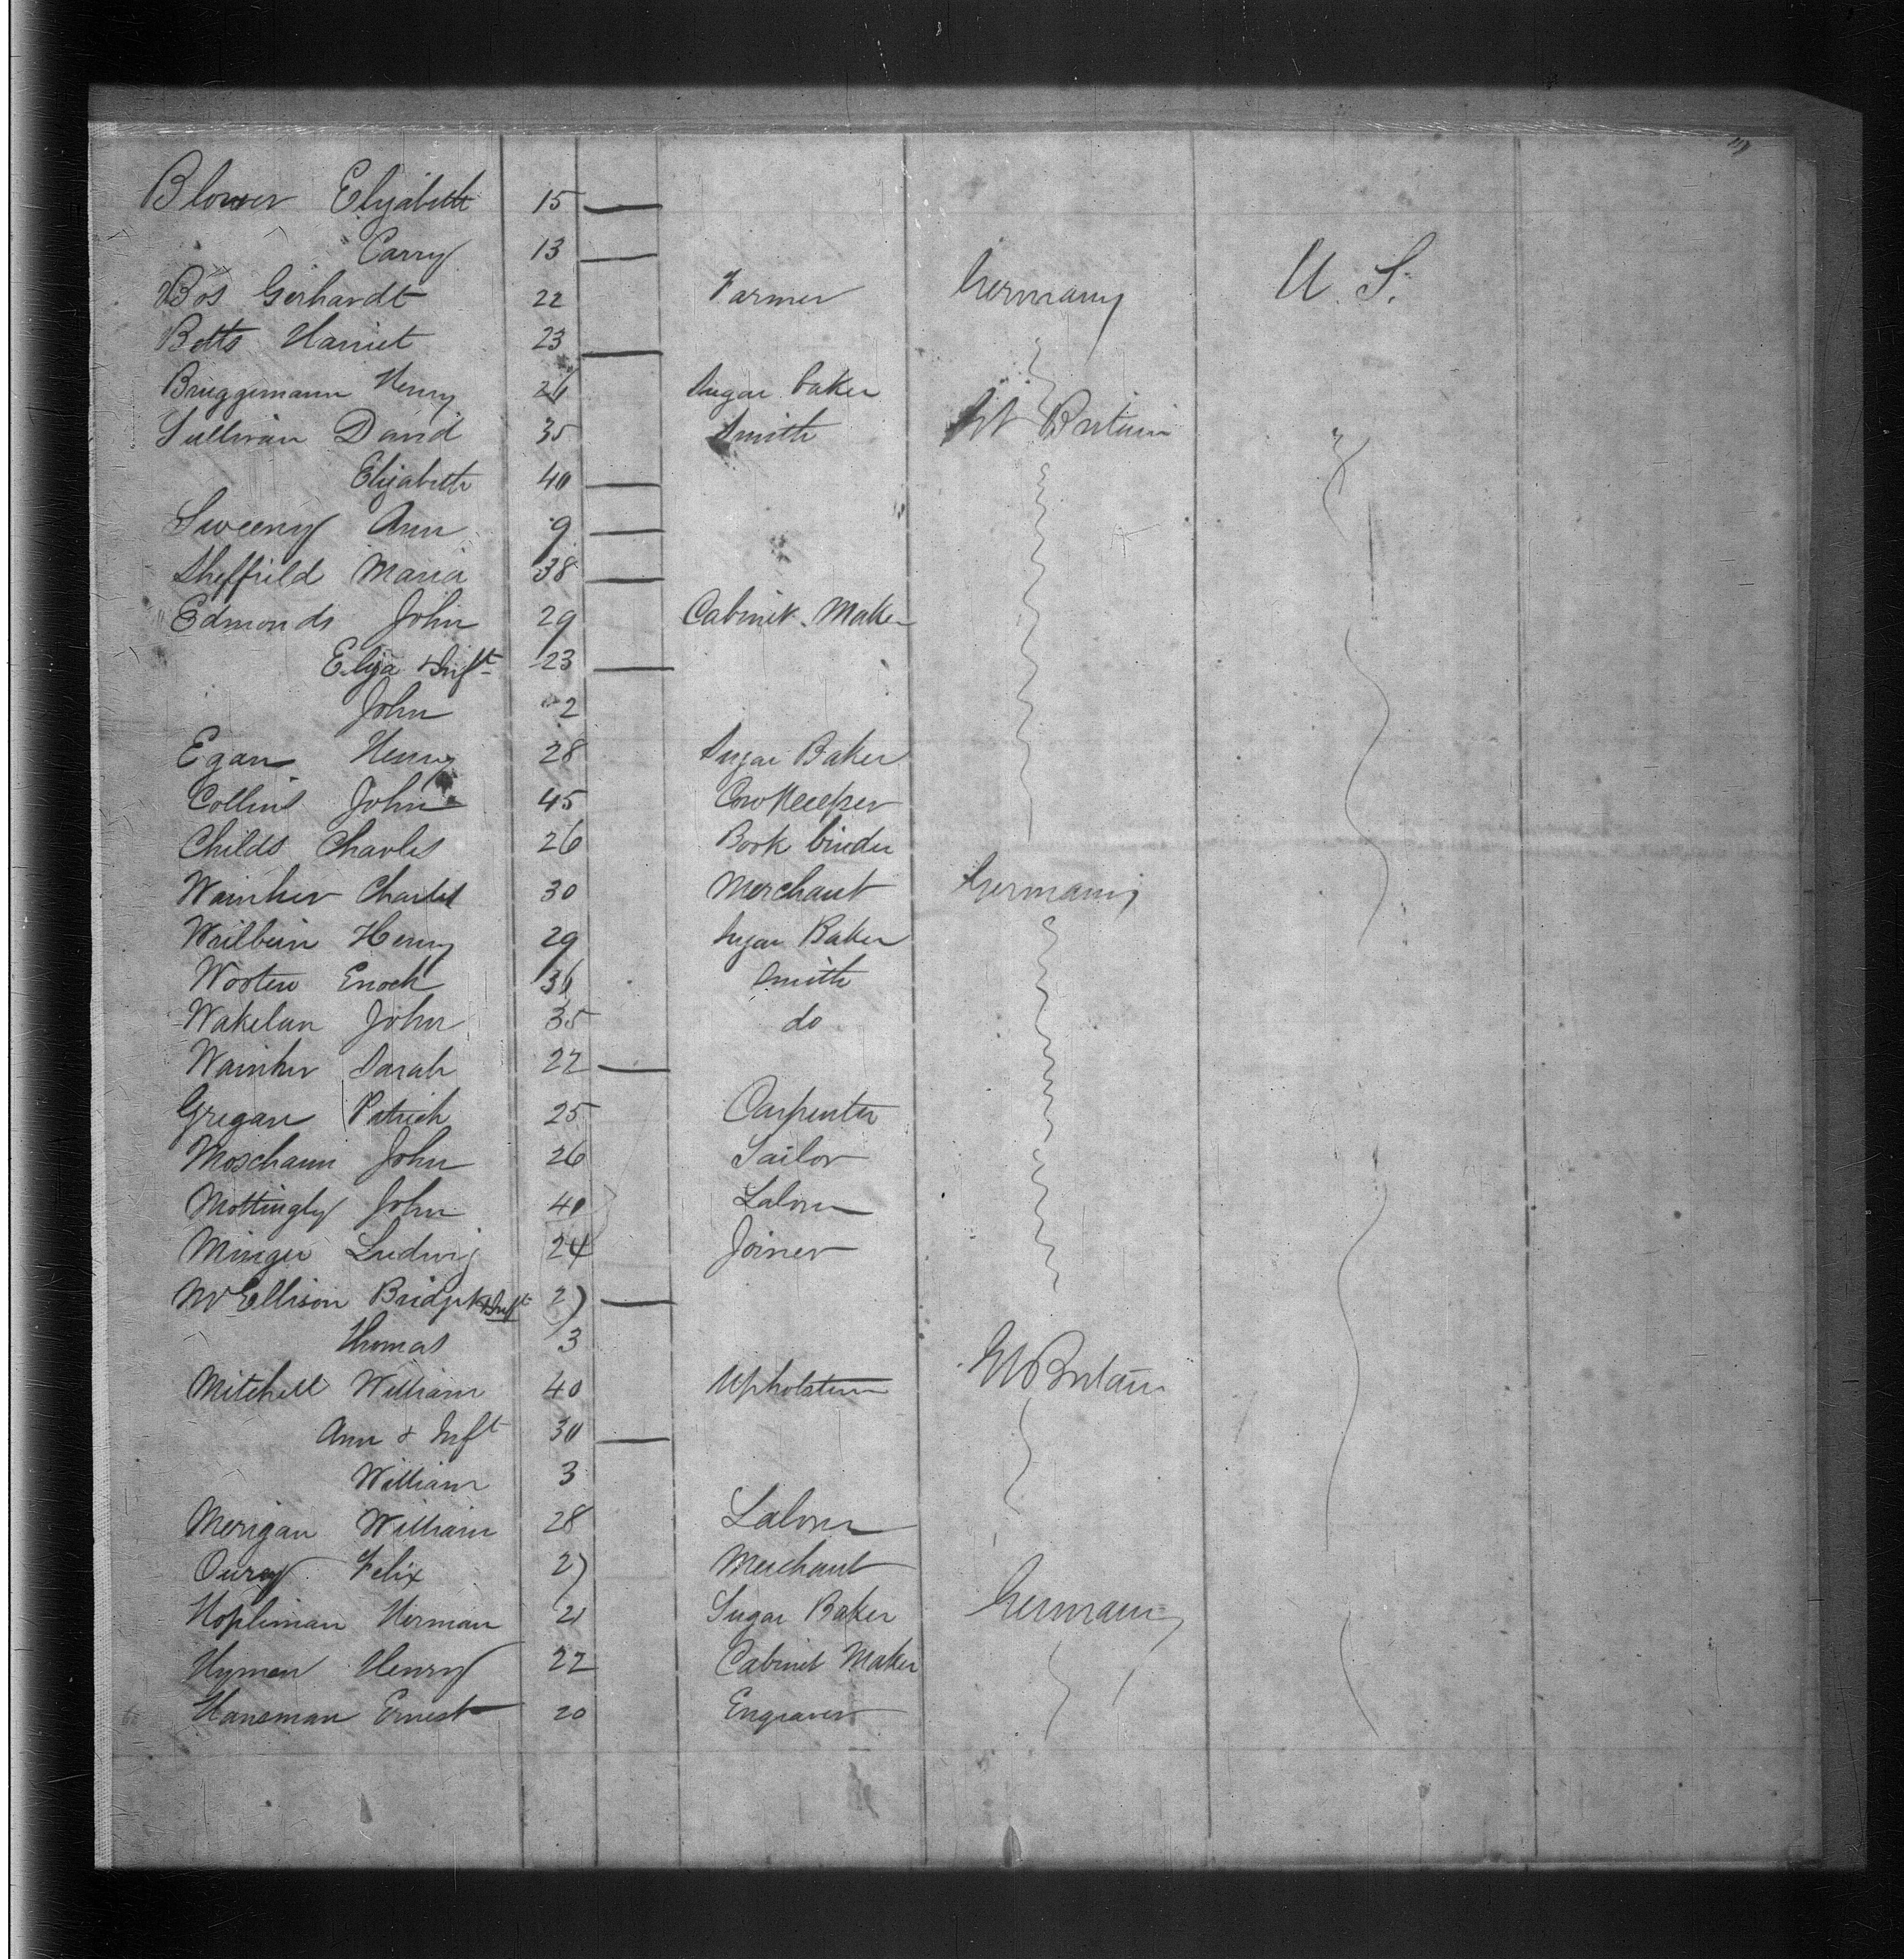 Blower Elizabeth 15 —
Carry 13 —
Bos Gerhardt 22 Farmer Germany U. S.
Betts Harriet 23 —
Bruggemann Henry 26 Sugar baker
Sullivan David 35 Smith Gt Britain
Elizabeth 40 —
Sweeny Ann 9 —
Sheffield Maria 38 —
Edmonds John 29 Cabinet Maker
Eliza & Inft 23 —
John 2
Egan Henry 28 Sugar Baker
Collins John 45 Cowkeeper
Childs Charles 26 Book binder
Wainker Charles 30 Merchant Germany
Henry 29 Sugar Baker
Wooten Enoch 36 Smith
Wakelan John 35 do
Wainker Sarah 22 —
Gregan Patrick 25 Carpenter
Moschann John 26 Tailor
Mottingly John 40 Labour
Ludwig 24 Joiner
McEllison Bridget & Inft 27 —
Thomas 3
Mitchell William 40 Upholsterer Gt Britain
Ann & Inft 30 —
William 3
Merigan William 28 Labour
Felix 27 Merchant
Hopliman Herman 21 Sugar Baker Germany
Hyman Henry 22 Cabinet Maker
Hansman Ernest 20 Engraver